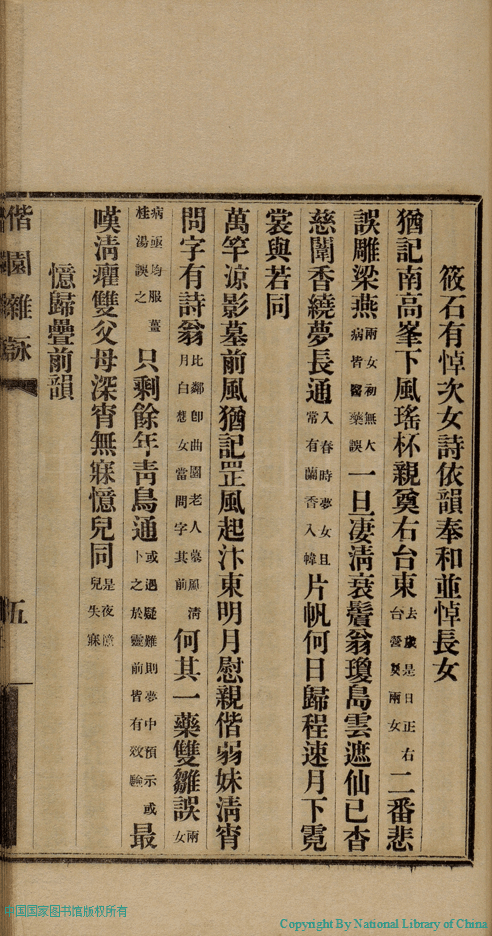 筱石有悼次女詩依韻奉和並悼長女
猶記南高峯下風瑤杯親奠右台東去歲是日正右台營奠兩女二番悲
誤雕梁燕兩女初無大病皆醫藥誤一旦凄清衰鬢翁瓊島雲遮仙已杳
慈闈香繞夢長通入春時夢女且常有蘭香入幃片帆何日歸程速月下霓
裳與若同
萬竿涼影墓前風猶記罡風起汴東明月慰親偕弱妹清宵
問字有詩翁比鄰卽曲園老人墓風清月白想女當問字其前何其一藥雙雛誤兩女
病亟均服薑桂湯誤之只剩餘年靑鳥通或遇疑難則夢中預示或卜之於靈前皆有效驗最
嘆淸癯雙父母深宵無寐憶兒同是夜憶兒失寐
憶歸疊前韻
偕園雜詠
五
中国国家图书馆版权所有
Copyright By National Library of China